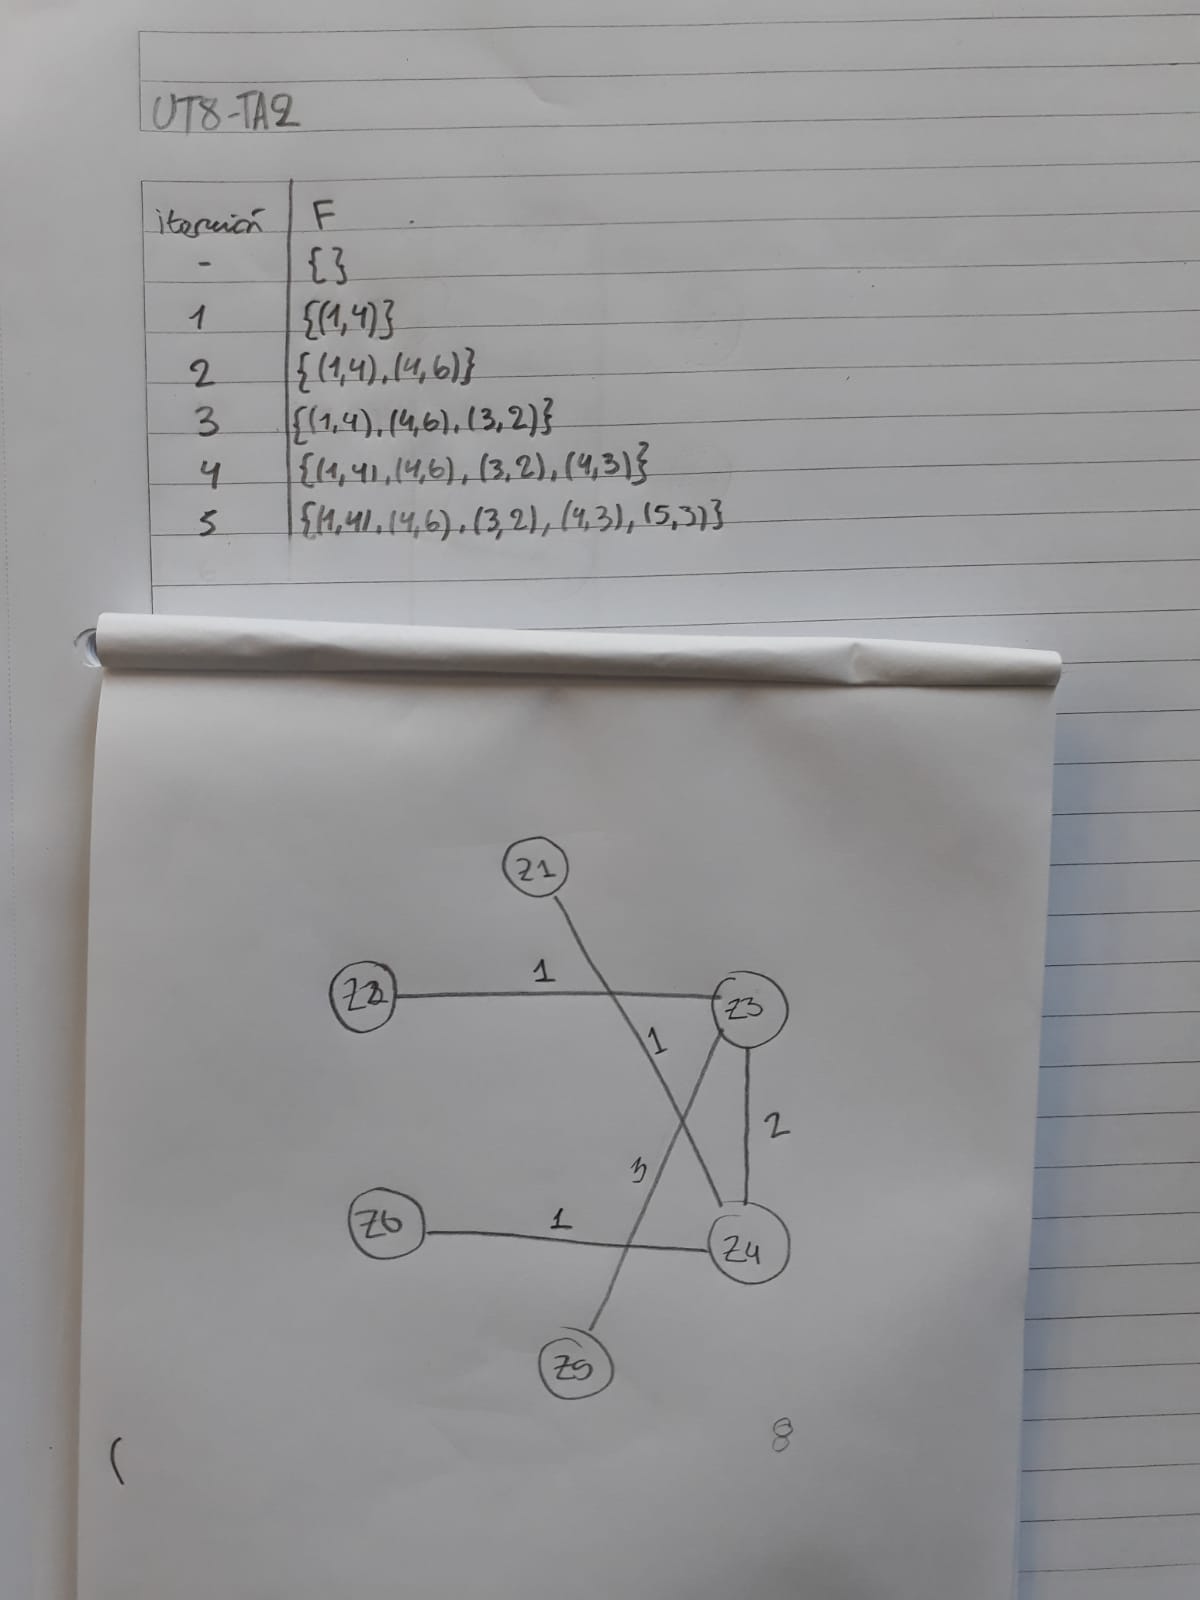 UT8-TA2
iteración F
- {}
1 {(1,4)}
2 {(1,4),(4,6)}
3 {(1,4),(4,6),(3,2)}
4 {(1,4),(4,6),(3,2),(4,3)}
5 {(1,4),(4,6),(3,2),(4,3),(5,3)}
Z1
1
Z2
Z3
1
2
3
1
Z6
Z4
Z5
8
(